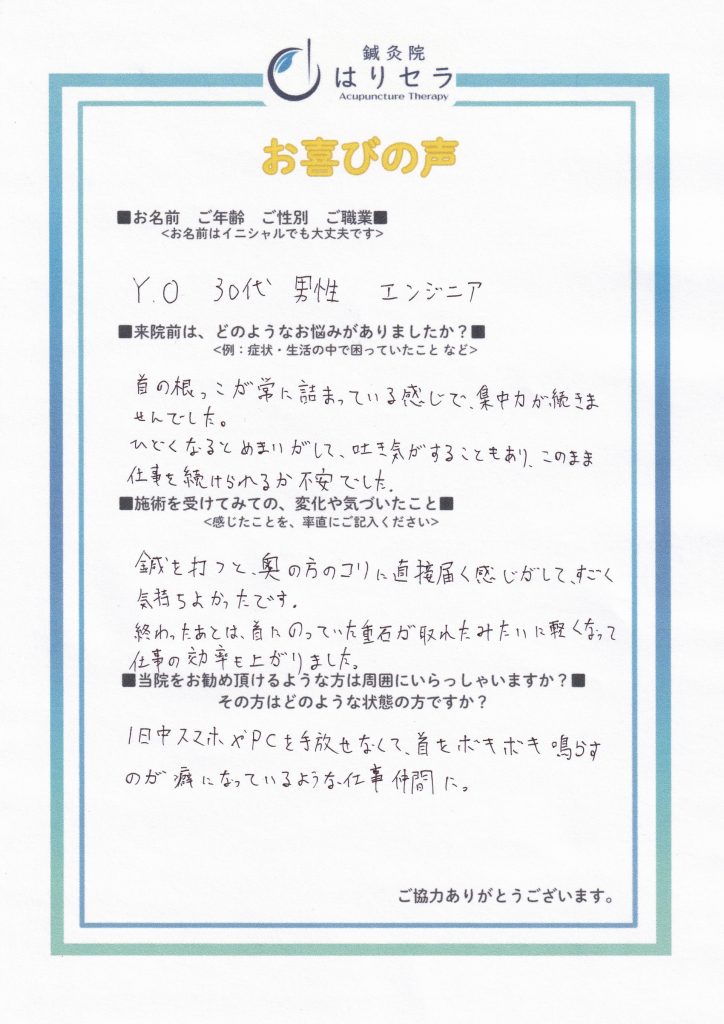 鍼灸院
はりセラ
Acupuncture Therapy
お喜びの声
■お名前　ご年齢　ご性別　ご職業■
<お名前はイニシャルでも大丈夫です>
Y.O　30代　男性　エンジニア
■来院前は、どのようなお悩みがありましたか？■
<例：症状・生活の中で困っていたこと など>
首の根っこが常に詰まっている感じで、集中力が続きま
せんでした。
ひどくなるとめまいがして、吐き気がすることもあり、このまま
仕事を続けられるか不安でした。
■施術を受けてみての、変化や気づいたこと■
<感じたことを、率直にご記入ください>
鍼を打つと、奥の方のコリに直接届く感じがして、すごく
気持ちよかったです。
終わったあとは、首にのっていた重石が取れたみたいに軽くなって
仕事の効率も上がりました。
■当院をお勧め頂けるような方は周囲にいらっしゃいますか？■
その方はどのような状態の方ですか？
1日中スマホやPCを手放せなくて、首をボキボキ鳴らす
のが癖になっているような、仕事仲間に。
ご協力ありがとうございます。